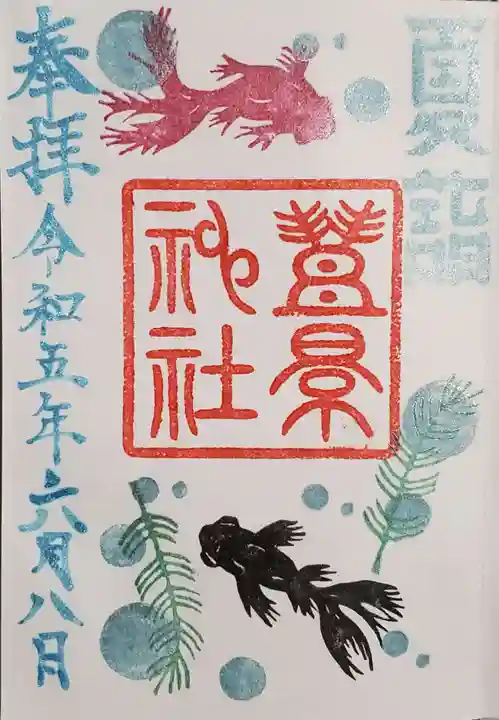 豊景
神社
奉拝 令和五年六月八日